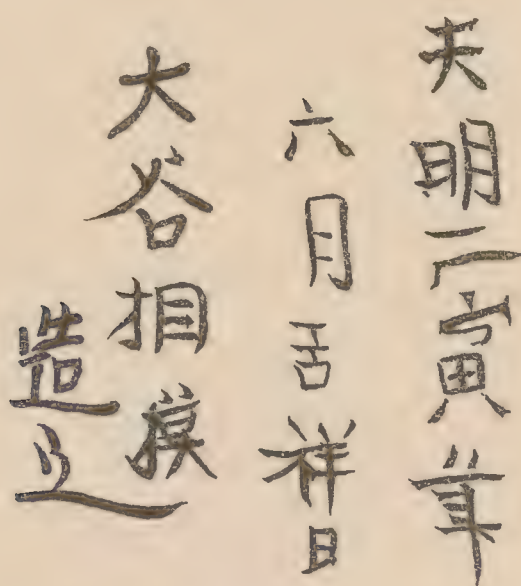 天明二寅年
六月吉祥日
大谷相模
造之